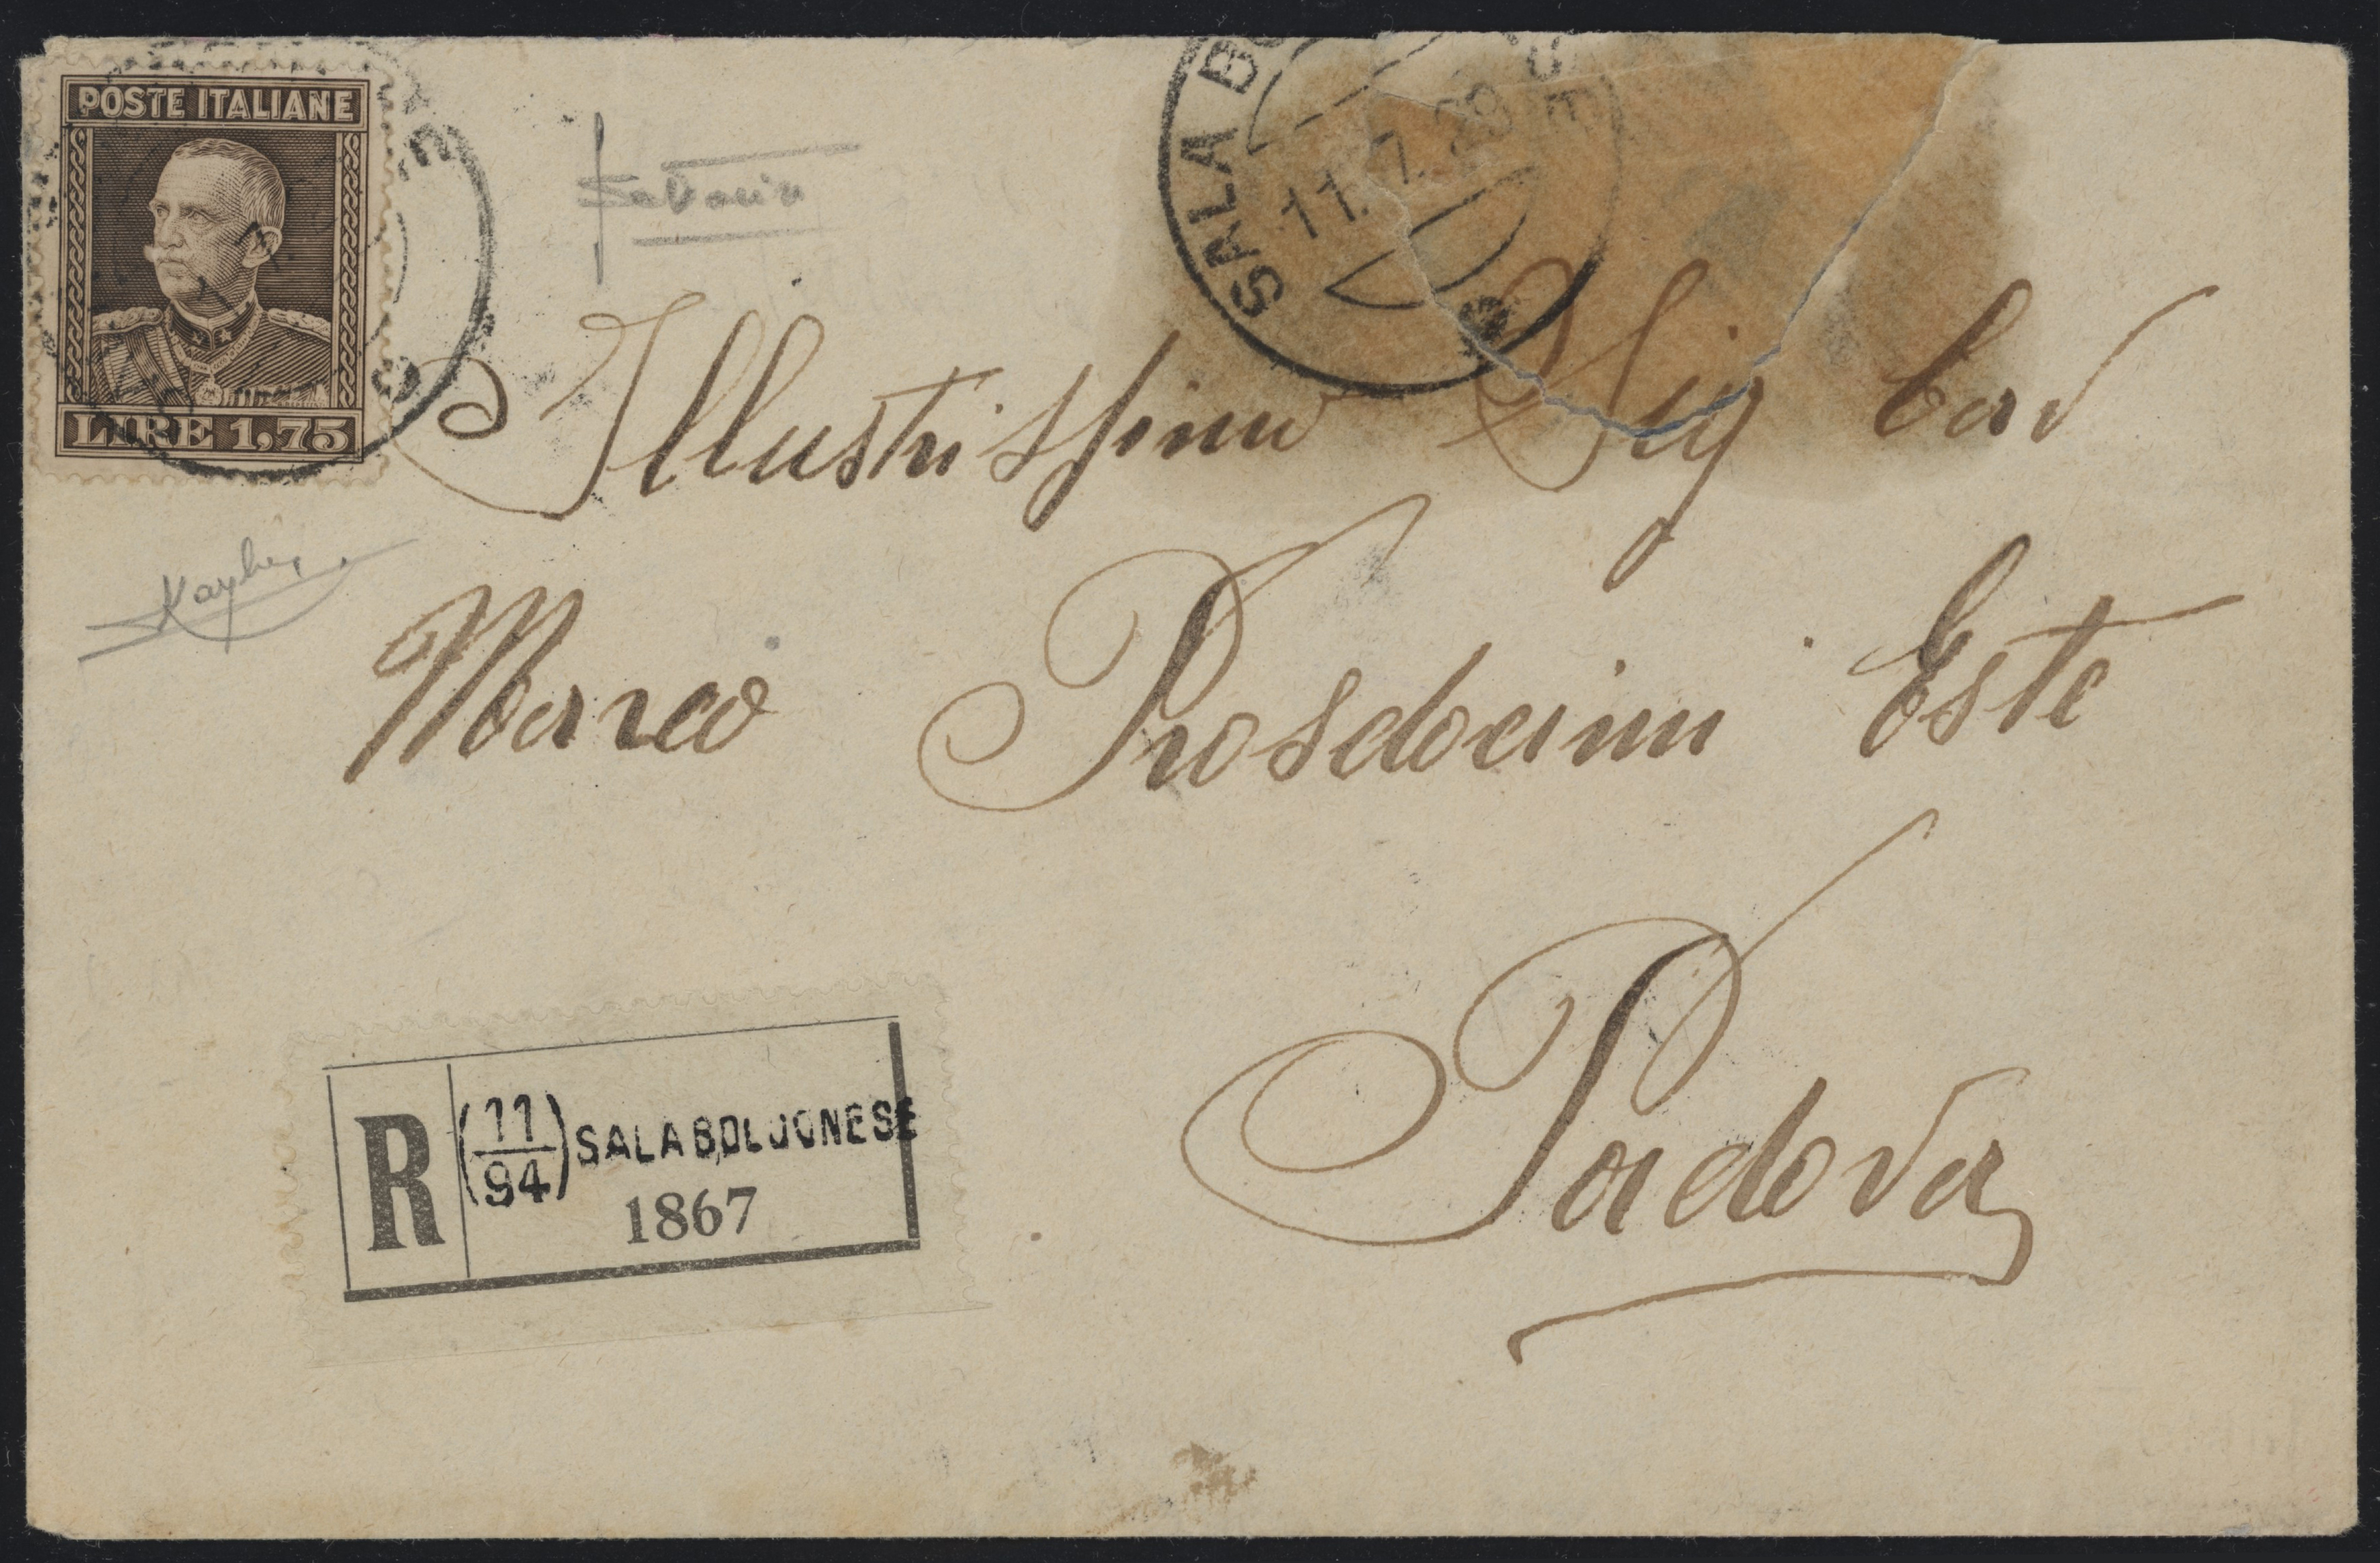 POSTE ITALIANE
LIRE 1,75
SALA BO SE
11.7.29
Illustrissimo Sig Cav
Marco Prosdocimi Este
Padova
R (11/94) SALA BOLOGNESE
1867